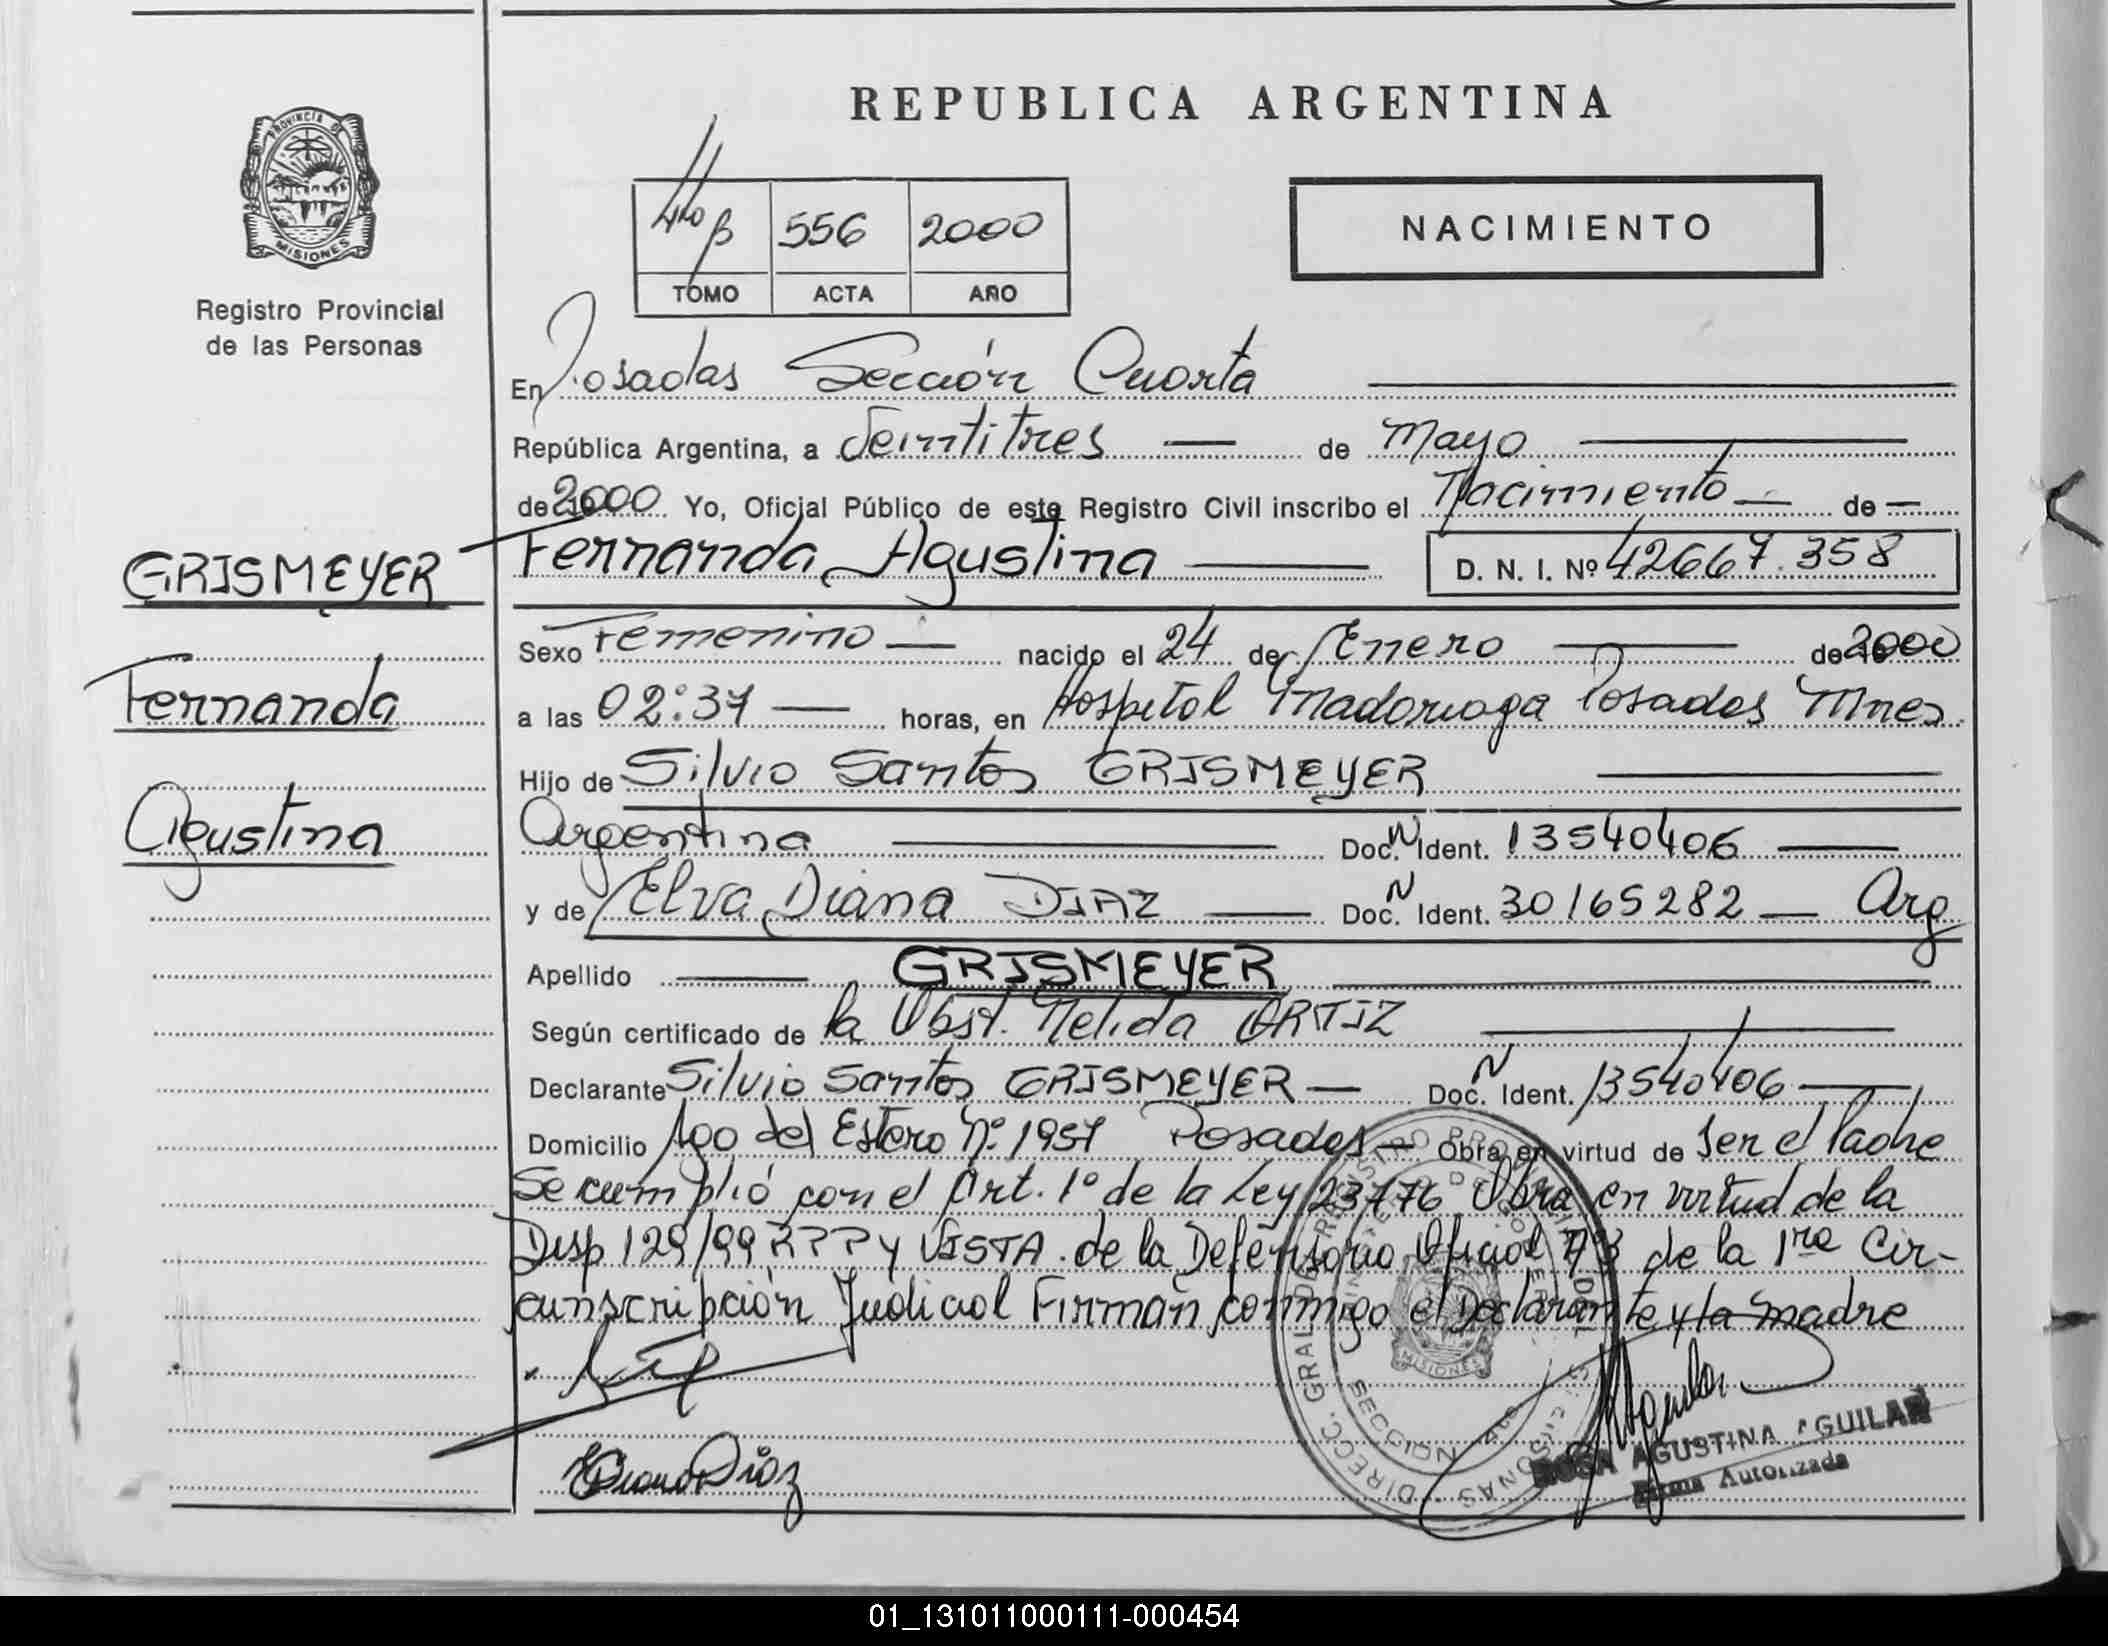 REPUBLICA ARGENTINA
PROVINCIA DE
MISIONES
Registro Provincial
de las Personas
4to β 556 2000
TOMO ACTA AÑO
NACIMIENTO
En Posadas Sección Cuarta
República Argentina, a Veintitres de Mayo
de 2000 Yo, Oficial Público de este Registro Civil inscribo el Nacimiento de
GRISMEYER Fernanda Agustina D. N. I. Nº 42667.358
Sexo Femenino nacido el 24 de Enero de 2000
Fernanda
a las 02:37 horas, en Hospital Madariaga Posadas Mnes
Hijo de Silvio Santos GRISMEYER
Agustina
Argentina Doc. N Ident. 13540406
y de Elva Diana DIAZ Doc. N Ident. 30165282 Arg
Apellido GRISMEYER
Según certificado de la Obst. Nelida ORTIZ
Declarante Silvio Santos GRISMEYER Doc. N Ident. 13540406
Domicilio Sgo del Estero Nº 1957 Posadas Obra en virtud de Ser el Padre
Se cumplió con el Art. 1º de la Ley 23776 Obra en virtud de la
Disp 129/99 RPP y VISTA de la Defensoria Oficial Nº3 de la 1ra Cir-
cunscripción Judicial Firman conmigo el Declarante y la madre
Diana Diaz
DIRECC. GRAL. DEL REGISTRO PROVINCIAL
SECCION 4ta
MISIONES
ROSA AGUSTINA AGUILAR
Firma Autorizada
01_131011000111-000454